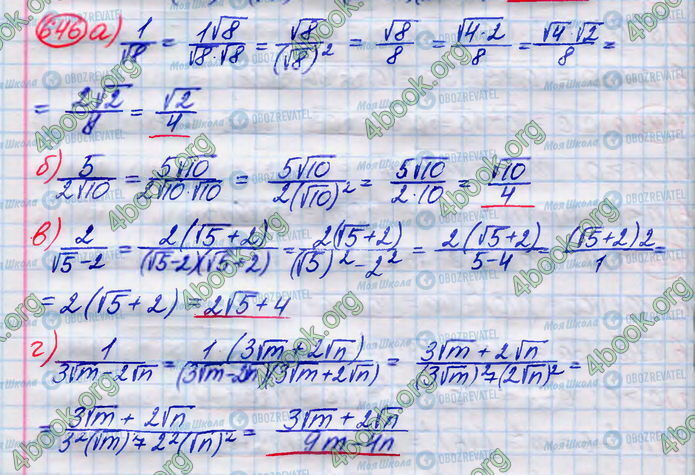 646 а) 1/√8 = 1√8/(√8·√8) = √8/(√8)² = √8/8 = √(4·2)/8 = √4·√2/8 =
= 2√2/8 = √2/4
б) 5/(2√10) = 5√10/(2√10·√10) = 5√10/(2(√10)²) = 5√10/(2·10) = √10/4
в) 2/(√5-2) = 2(√5+2)/((√5-2)(√5+2)) = 2(√5+2)/((√5)²-2²) = 2(√5+2)/(5-4) = (√5+2)2/1 =
= 2(√5+2) = 2√5+4
г) 1/(3√m-2√n) = 1(3√m+2√n)/((3√m-2√n)(3√m+2√n)) = (3√m+2√n)/((3√m)²-(2√n)²) =
= (3√m+2√n)/(3²(√m)²-2²(√n)²) = (3√m+2√n)/(9m-4n)
4book.org
Моя Школа
OBOZREVATEL